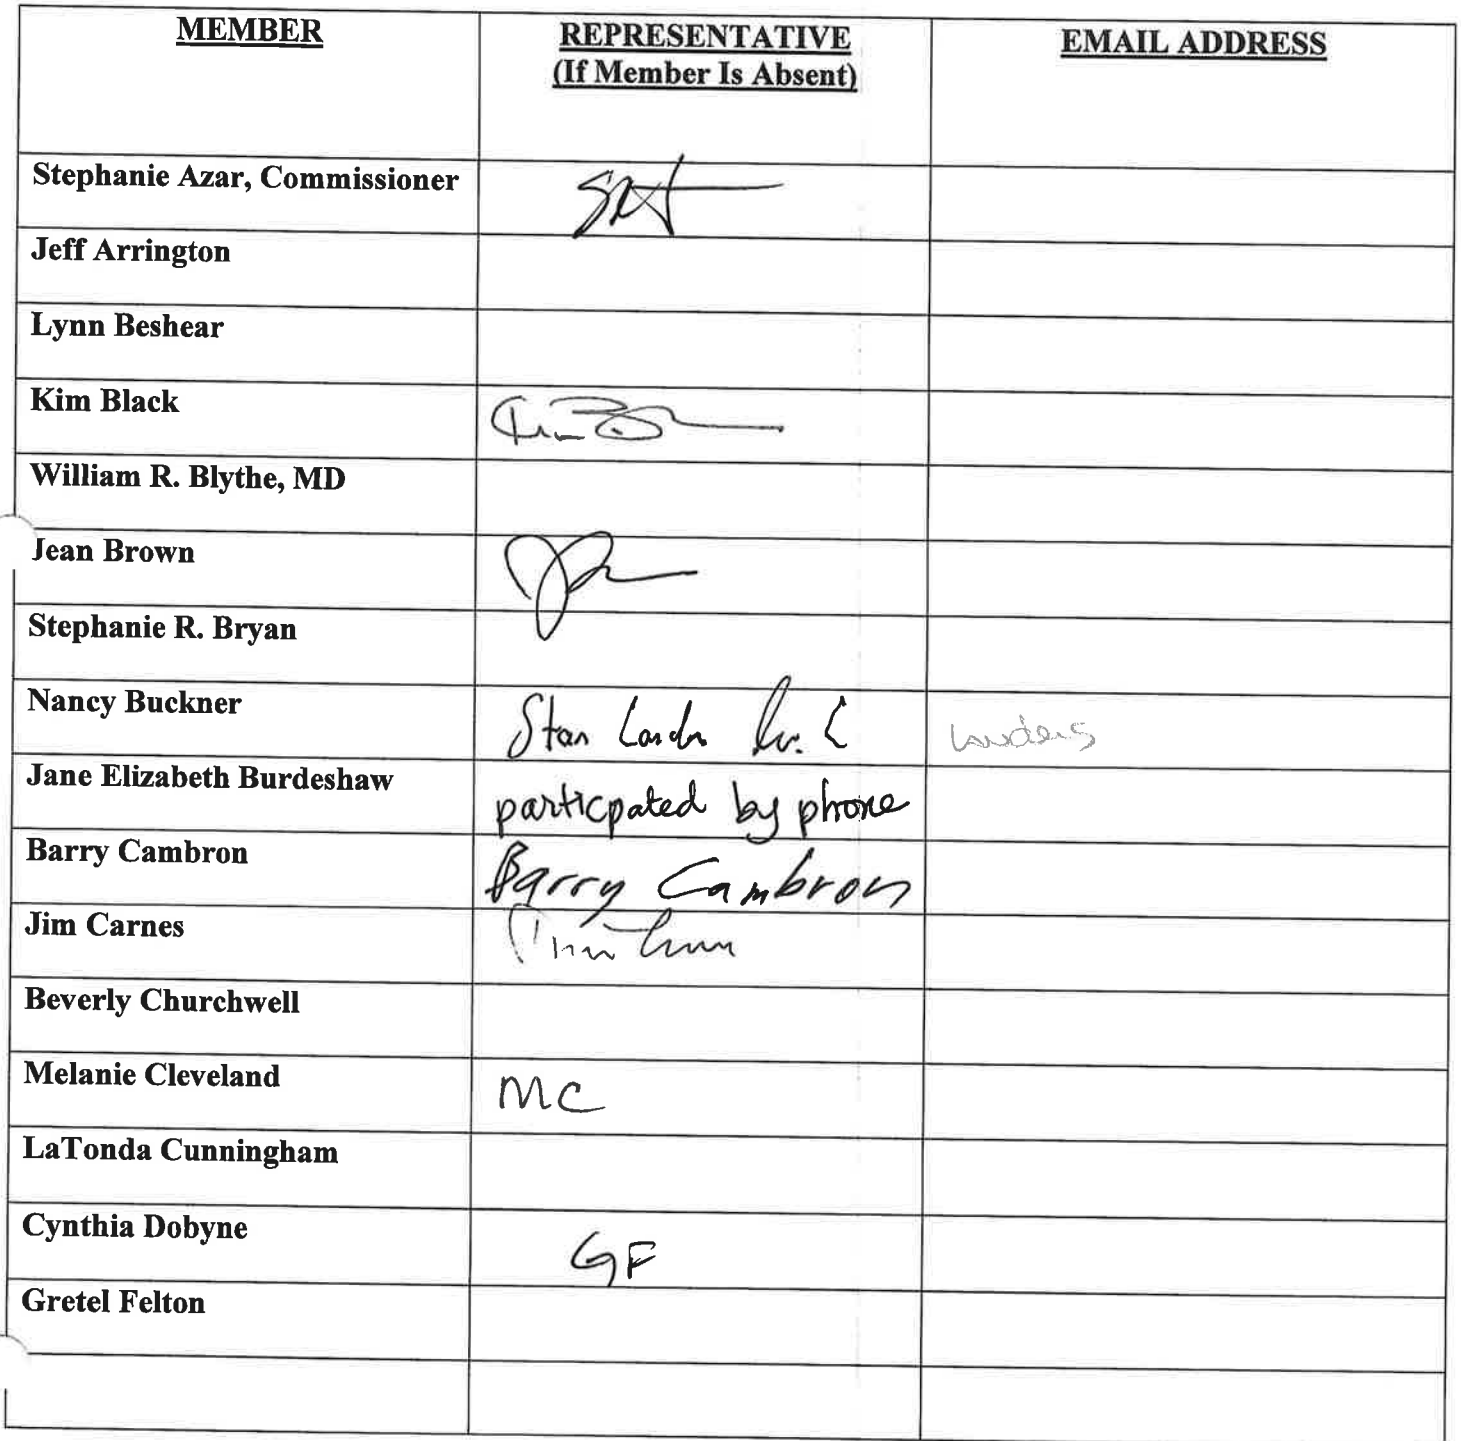 MEMBER
REPRESENTATIVE
(If Member Is Absent)
EMAIL ADDRESS
Stephanie Azar, Commissioner
Jeff Arrington
Lynn Beshear
Kim Black
William R. Blythe, MD
Jean Brown
Stephanie R. Bryan
Nancy Buckner
Stan
Jane Elizabeth Burdeshaw
particpated by phone
Barry Cambron
Barry Cambron
Jim Carnes
Beverly Churchwell
Melanie Cleveland
MC
LaTonda Cunningham
Cynthia Dobyne
GF
Gretel Felton